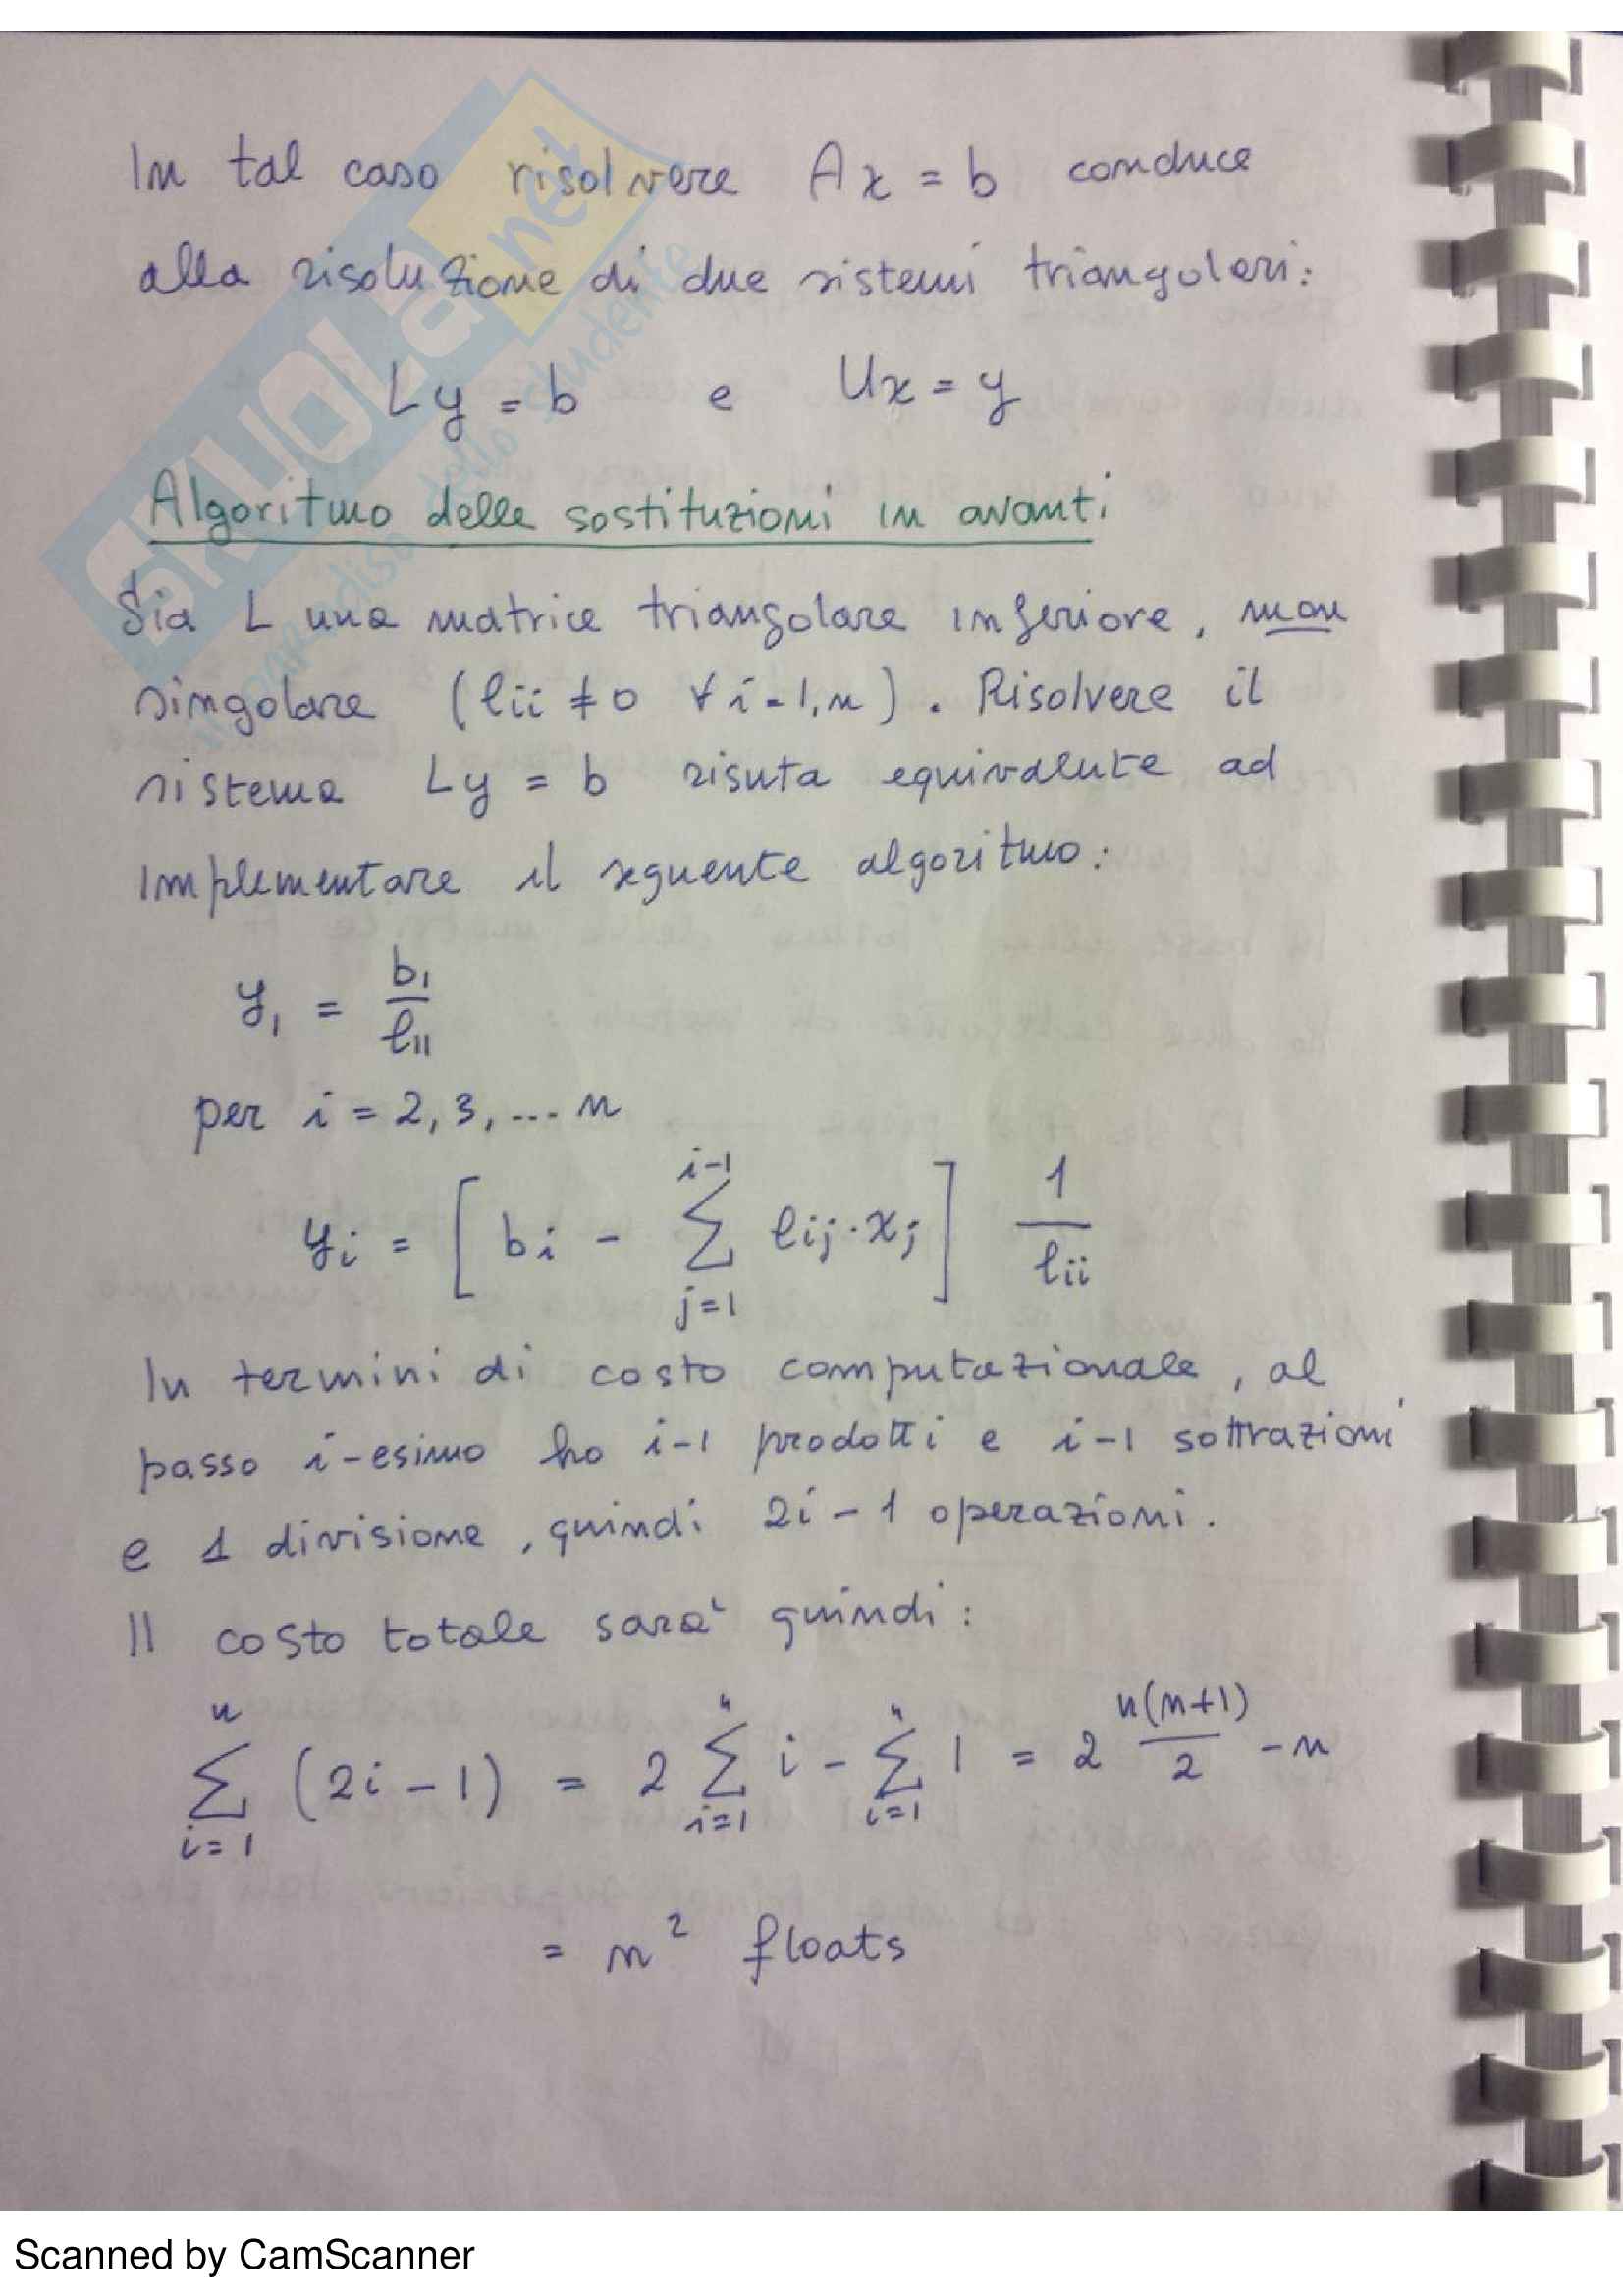 In tal caso risolvere Ax = b conduce
alla risoluzione di due sistemi triangolari:
Ly = b e Ux = y
Algoritmo delle sostituzioni in avanti
Sia L una matrice triangolare inferiore, non
singolare (lii ≠ 0 ∀ i = 1,n). Risolvere il
sistema Ly = b risuta equivalente ad
implementare il seguente algoritmo:
y₁ = b₁ / l₁₁
per i = 2, 3, ... n
yi = [ bi - ∑_{j=1}^{i-1} lij · xj ] 1 / lii
In termini di costo computazionale, al
passo i-esimo ho i-1 prodotti e i-1 sottrazioni
e 1 divisione, quindi 2i - 1 operazioni.
Il costo totale sarà quindi:
∑_{i=1}^{n} (2i - 1) = 2 ∑_{i=1}^{n} i - ∑_{i=1}^{n} 1 = 2 n(n+1) / 2 - n
= n² floats
SKUOLa.net
dello studente
Scanned by CamScanner